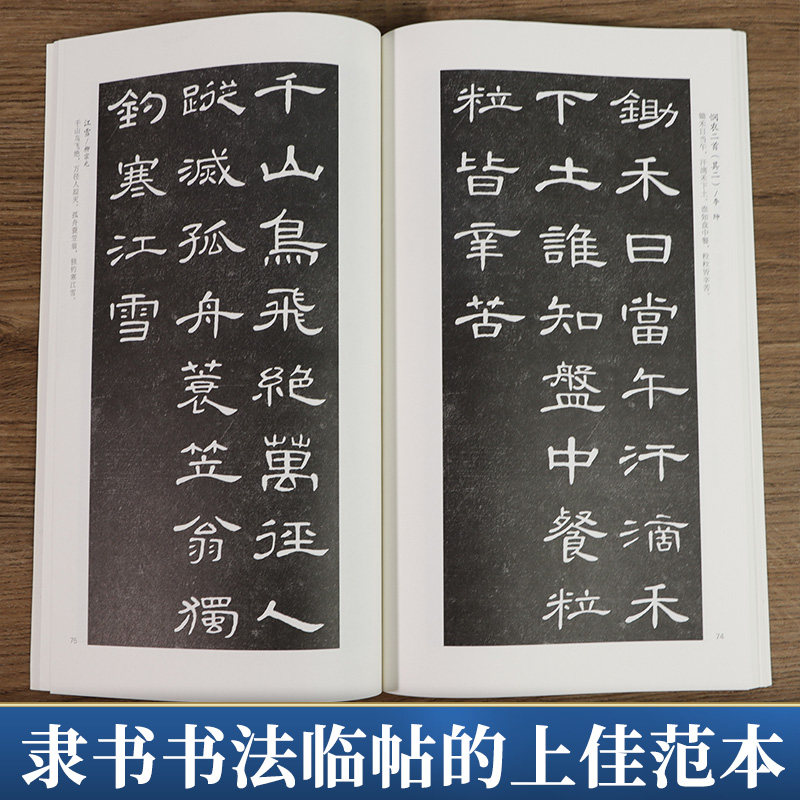 悯农二首（其二）/李绅
锄禾日当午，汗滴禾下土。谁知盘中餐，粒粒皆辛苦。
鋤禾日當午汗滴禾
下土誰知盤中餐粒
粒皆辛苦
74
千山鳥飛絶萬徑人
蹤滅孤舟蓑笠翁獨
釣寒江雪
江雪/柳宗元
千山鸟飞绝，万径人踪灭。孤舟蓑笠翁，独钓寒江雪。
75
隶书书法临帖的上佳范本